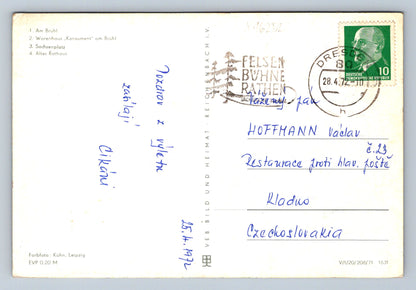 1. Am Brühl
2. Warenhaus „Konsument" am Brühl
3. Sachsenplatz
4. Altes Rathaus
Pozdrav z výletu
zasílají
Cikáni
25.4.1972
Farbfoto: Kühn, Leipzig
EVP 0,20 M
VEB BILD UND HEIMAT REICHENBACH i. V.
FELSEN
BÜHNE
RATHEN
DRESDEN
80
28.4.72-10
h
10
Vážený pan
HOFFMANN Václav
č. 23
Restaurace proti hlav. poště
Kladno
Czechoslovakia